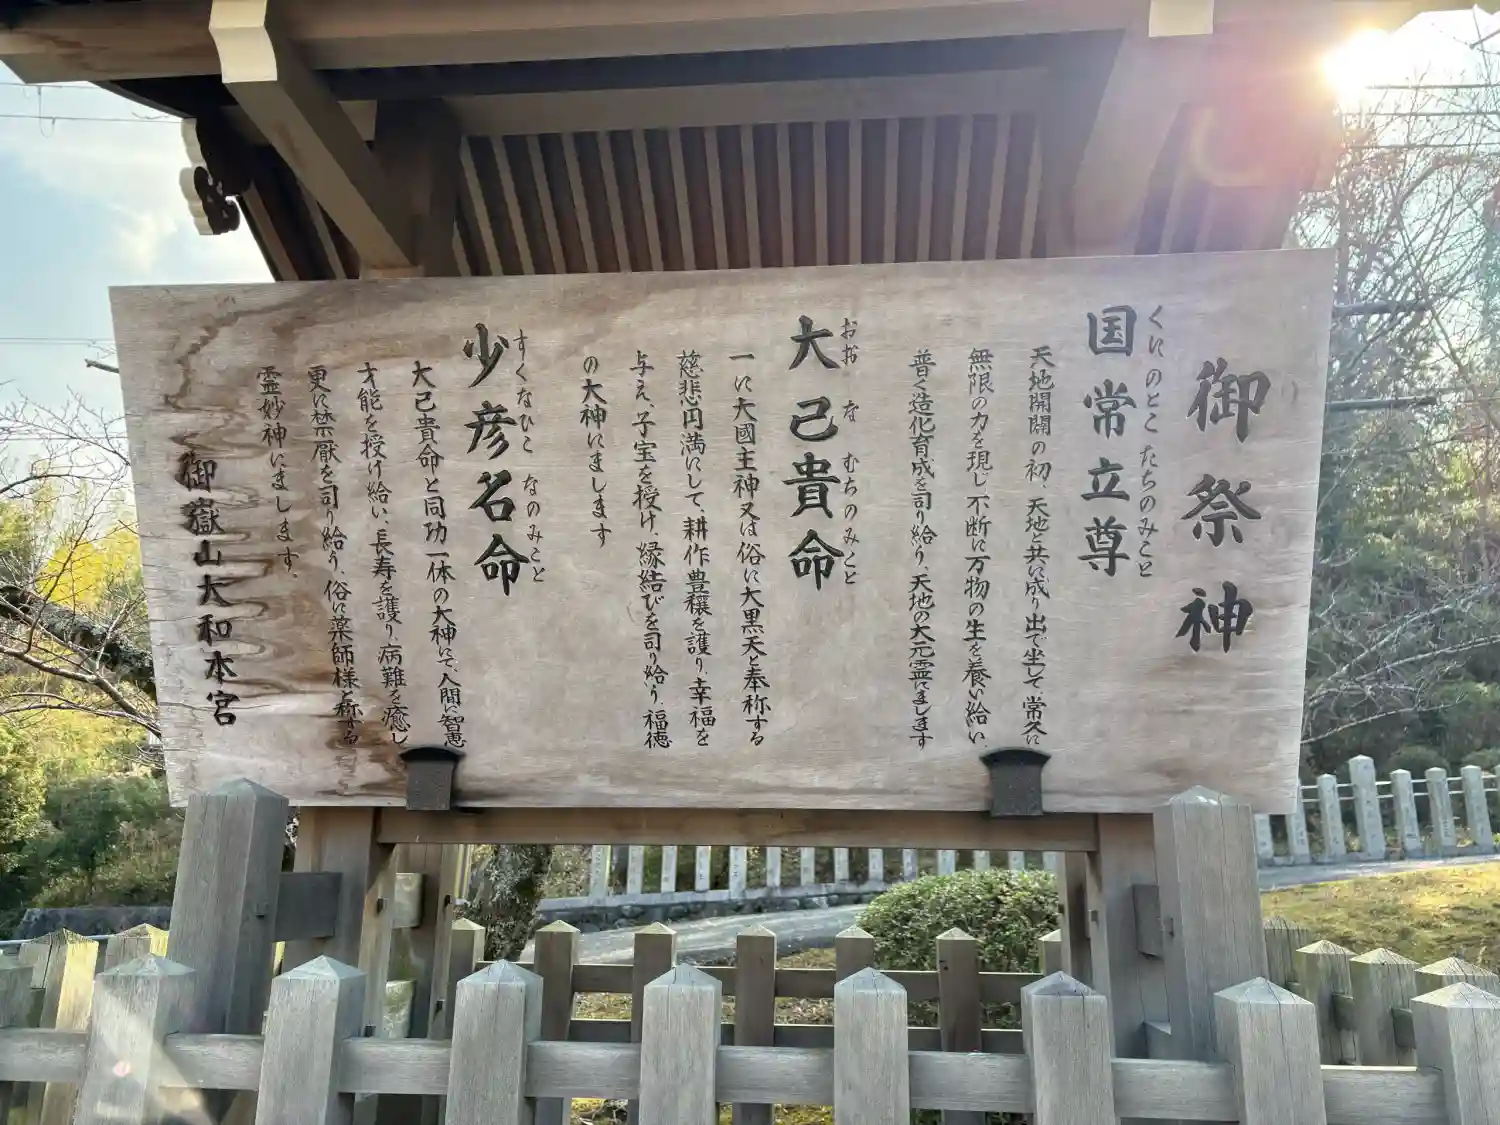 御祭神
くにのとこたちのみこと
国常立尊
天地開闢の初、天地と共に成り出で坐して、常久に
無限の力を現じ、不断に万物の生を養い給い、
普く造化育成を司り給う、天地の大元霊にまします
おお な むちのみこと
大己貴命
一に大國主神又は俗に大黒天と奉称する
慈悲円満にして、耕作豊穣を護り、幸福を
与え、子宝を授け、縁結びを司り給う、福徳
の大神にまします
すくなひこ なのみこと
少彦名命
大己貴命と同功一体の大神にて、人間に智恵
才能を授け給い、長寿を護り、病難を癒し
更に禁厭を司り給う、俗に薬師様と称する
霊妙神にましします。
御嶽山大和本宮